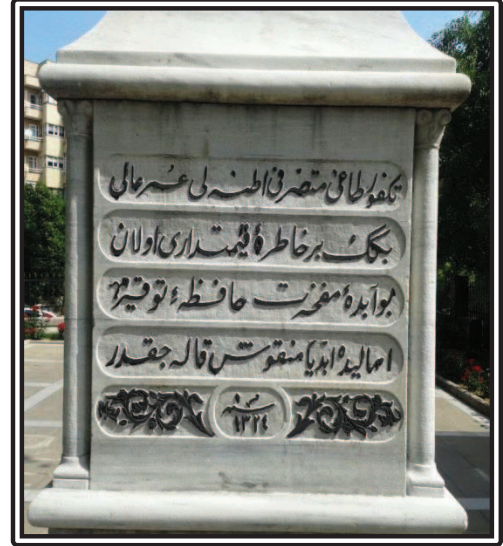 تكفورطاغى متصرفى اطنه لى عمر عالى
بكك بر خاطرهٔ قيمتدارى اولان
بو آبدهٔ مفخرت حافظهٔ توقير
اهاليده ابدياً منقوش قاله جقدر
سنه
١٣٢٤